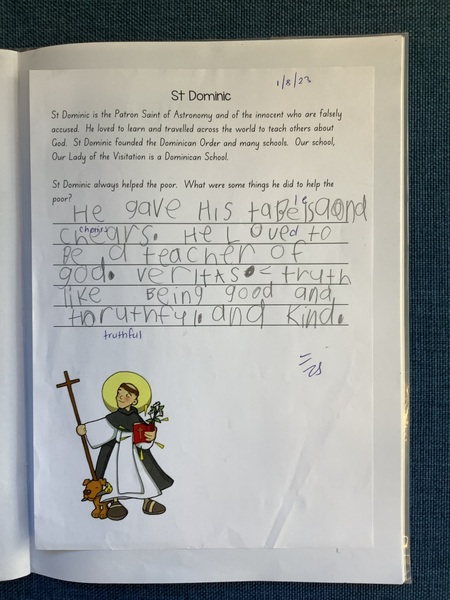 1/8/23
St Dominic
St Dominic is the Patron Saint of Astronomy and of the innocent who are falsely
accused. He loved to learn and travelled across the world to teach others about
God. St Dominic founded the Dominican Order and many schools. Our school,
Our Lady of the Visitation is a Dominican School.
St Dominic always helped the poor. What were some things he did to help the
poor?
le
He gave His tabels and
chairs
chears. He Loved to
be a teacher of
god. veritas < truth
like Being good and
thruthful. and kind.
truthful